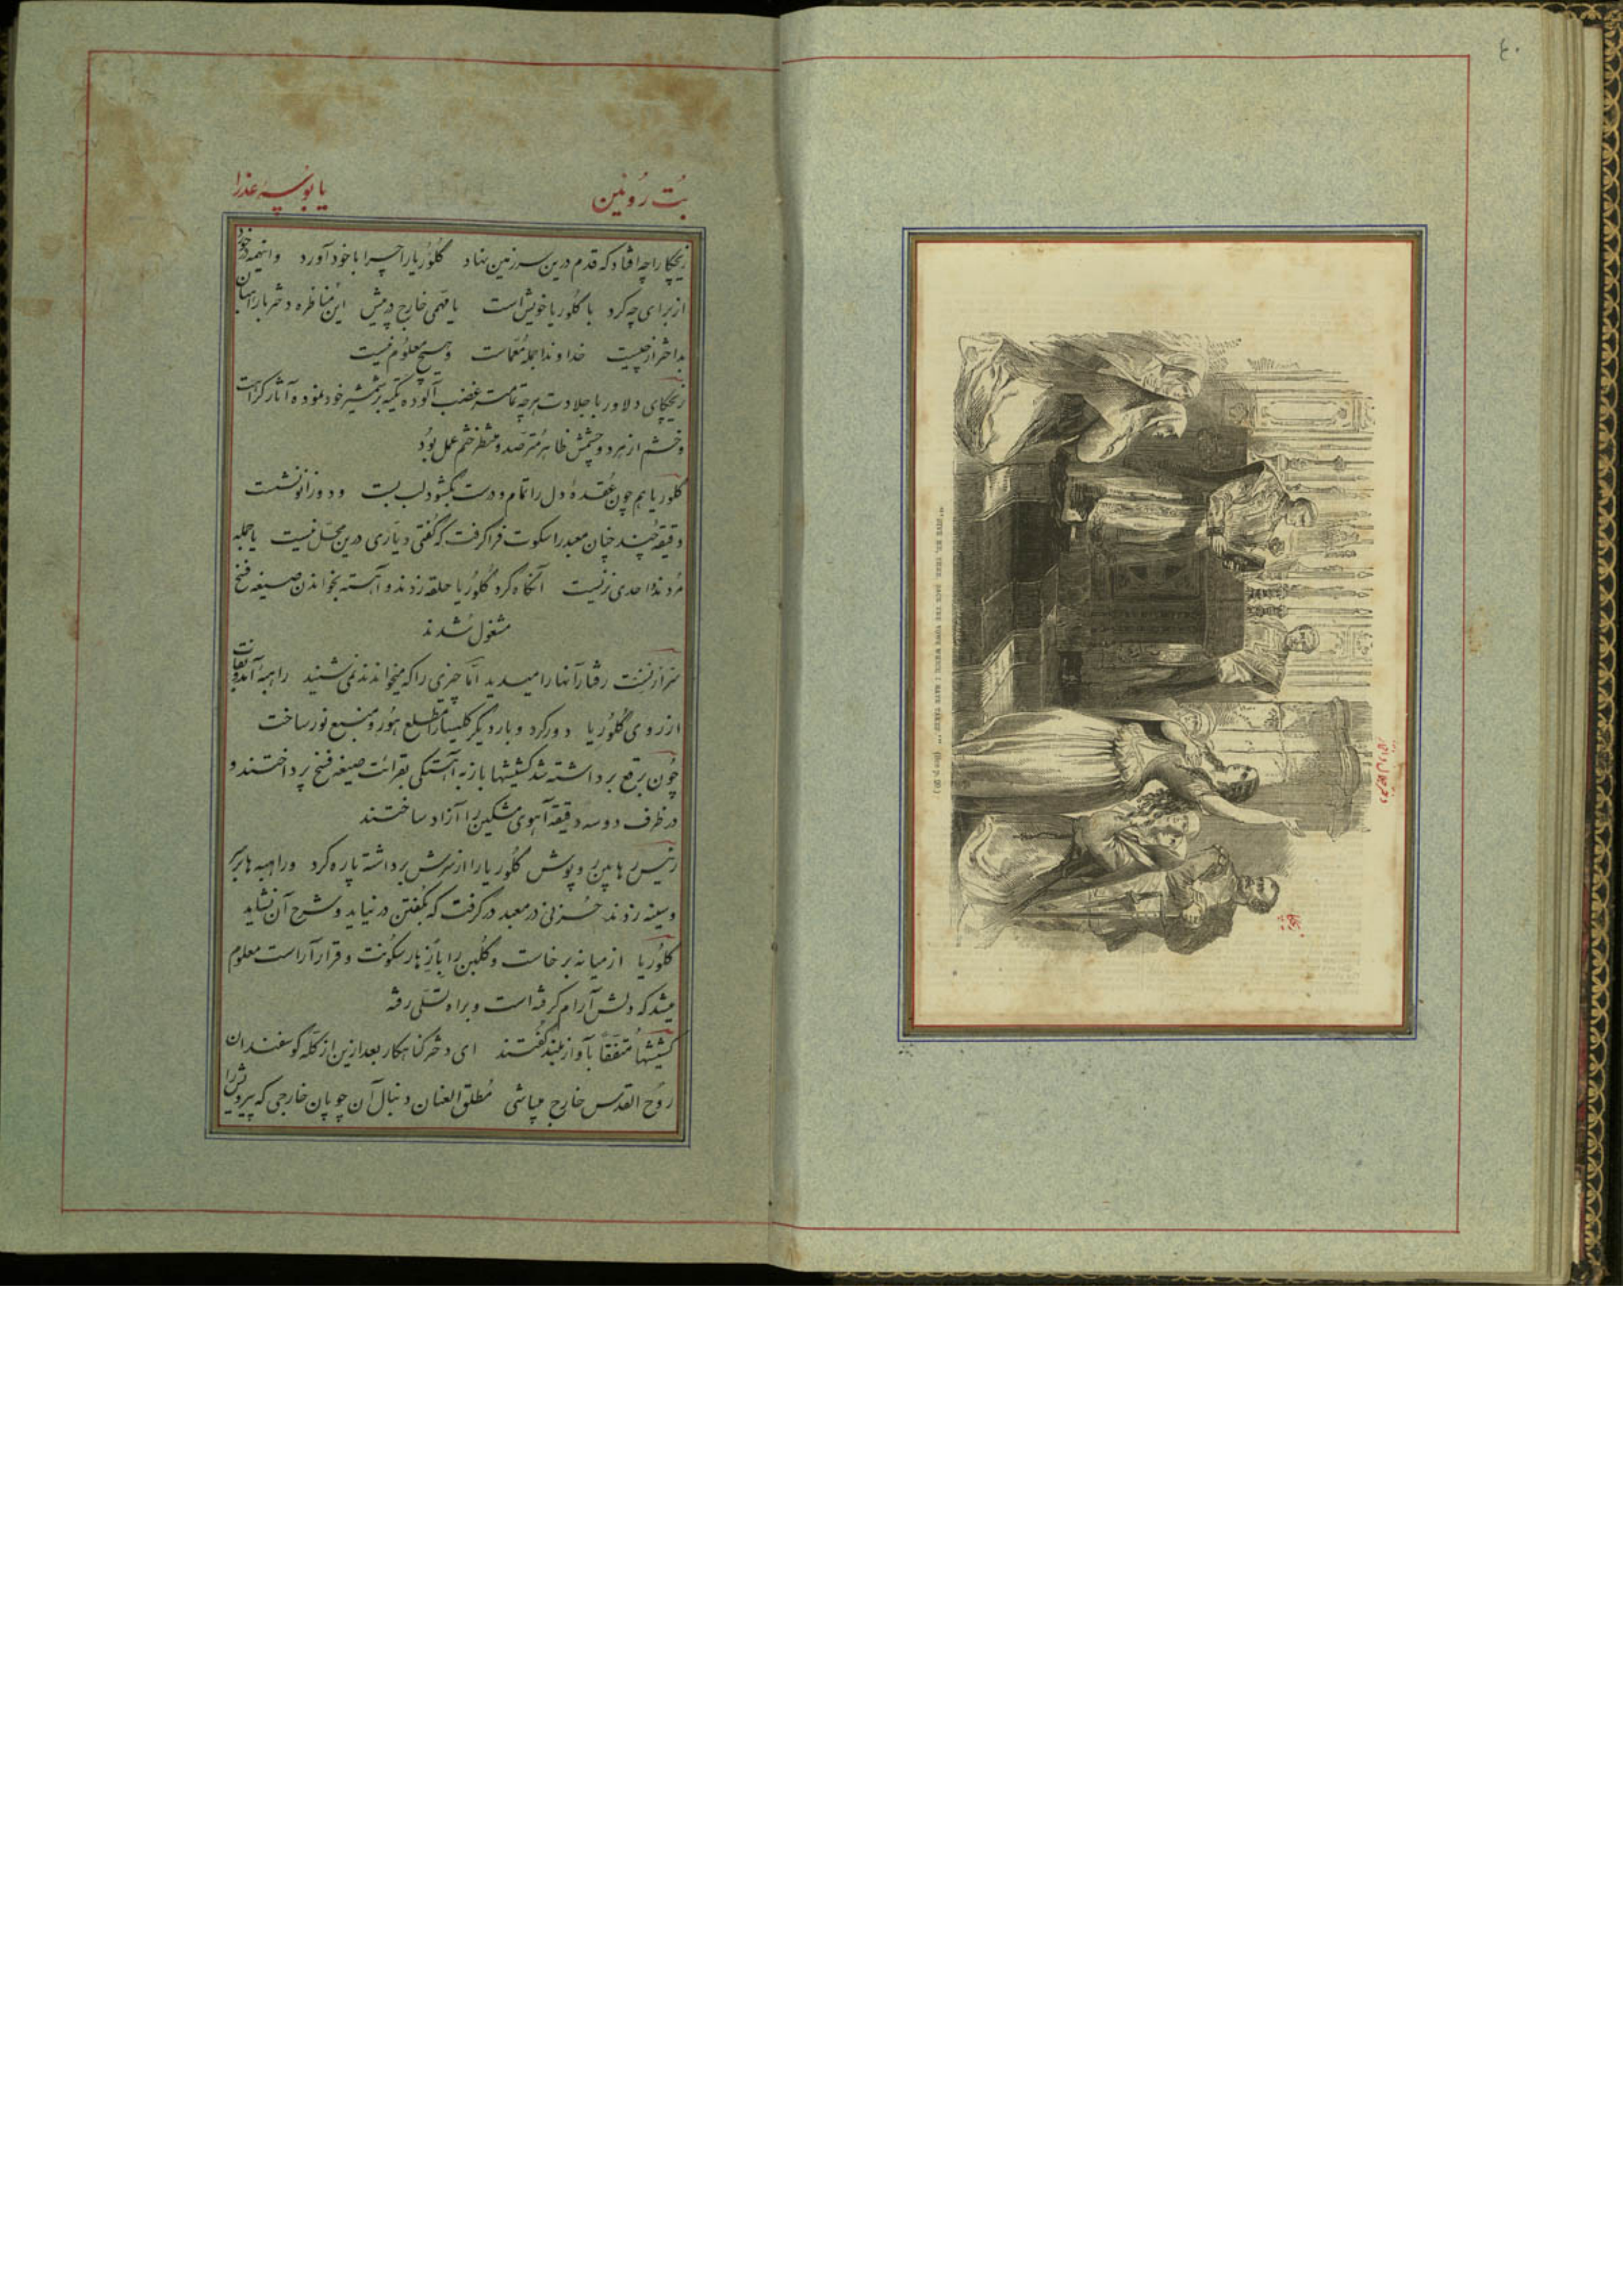 ٤٠
بُت رُوئین
یا بوسهٔ عذرا
زیچکا را چه افتاد که قدم درین سرزمین نهاد گلوریا را چرا با خود آورد و اینهمه
از برای چه کرد با گلوریا خویش است یا فهمی خارج در پیش این مناظره دختر با راهبان
خداوندا جمله مُعمّاست و هیچ معلوم نیست
زیچکای دلاور با جلادت هرچه تمامتر غضب آلوده تکیه بر شمشیر خود نموده آثار کراهت
و خشم از هر دو چشمش ظاهر مترصد و منتظر ختم عمل بود
گلوریا هم چون عُقدهٔ دل را تمام و درست بگشود لب ببست و دو زانو نشست
دقیقهٔ چند چنان معبد را سکوت فرا گرفت که گفتی دیّاری درین محل نیست یا جمله
مُردند و احدی نزیست آنگاه گرد گلوریا حلقه زدند و آهسته بخواندن صیغه فسخ
مشغول شدند
رفتار آنها را میدید امّا چیزی را که میخواندند نمی شنید راهبهٔ
از روی گلوریا دور کرد و بار دیگر کلیسا را مطلع هُور و منبع نور ساخت
چون برقع برداشته شد کشیشها باز به آهستگی بقرائت صیغه فسخ پرداختند و
در ظرف دو سه دقیقه آهوی مشکین را آزاد ساختند
رئیس رهابین روپوش گلوریا را از سرش برداشته پاره کرد و راهبه ها بر سر
و سینه زدند حُزنی در معبد در گرفت که بگفتن در نیاید و شرح آن نشاید
گلوریا از میانه بر خاست و گلبن را باز هار سکونت و قرار آراست معلوم
میشد که دلش آرام گرفته است و براه تسلّی رفته
کشیشها مُتفقاً بآواز بلند گفتند ای دختر گناهکار بعد ازین از گلّه گوسفندان
روح القدس خارج میباشی مُطلق العنان دنبال آن چوپان خارجی که
TAKE BACK THE VOWS WHICH I HAVE TAKEN